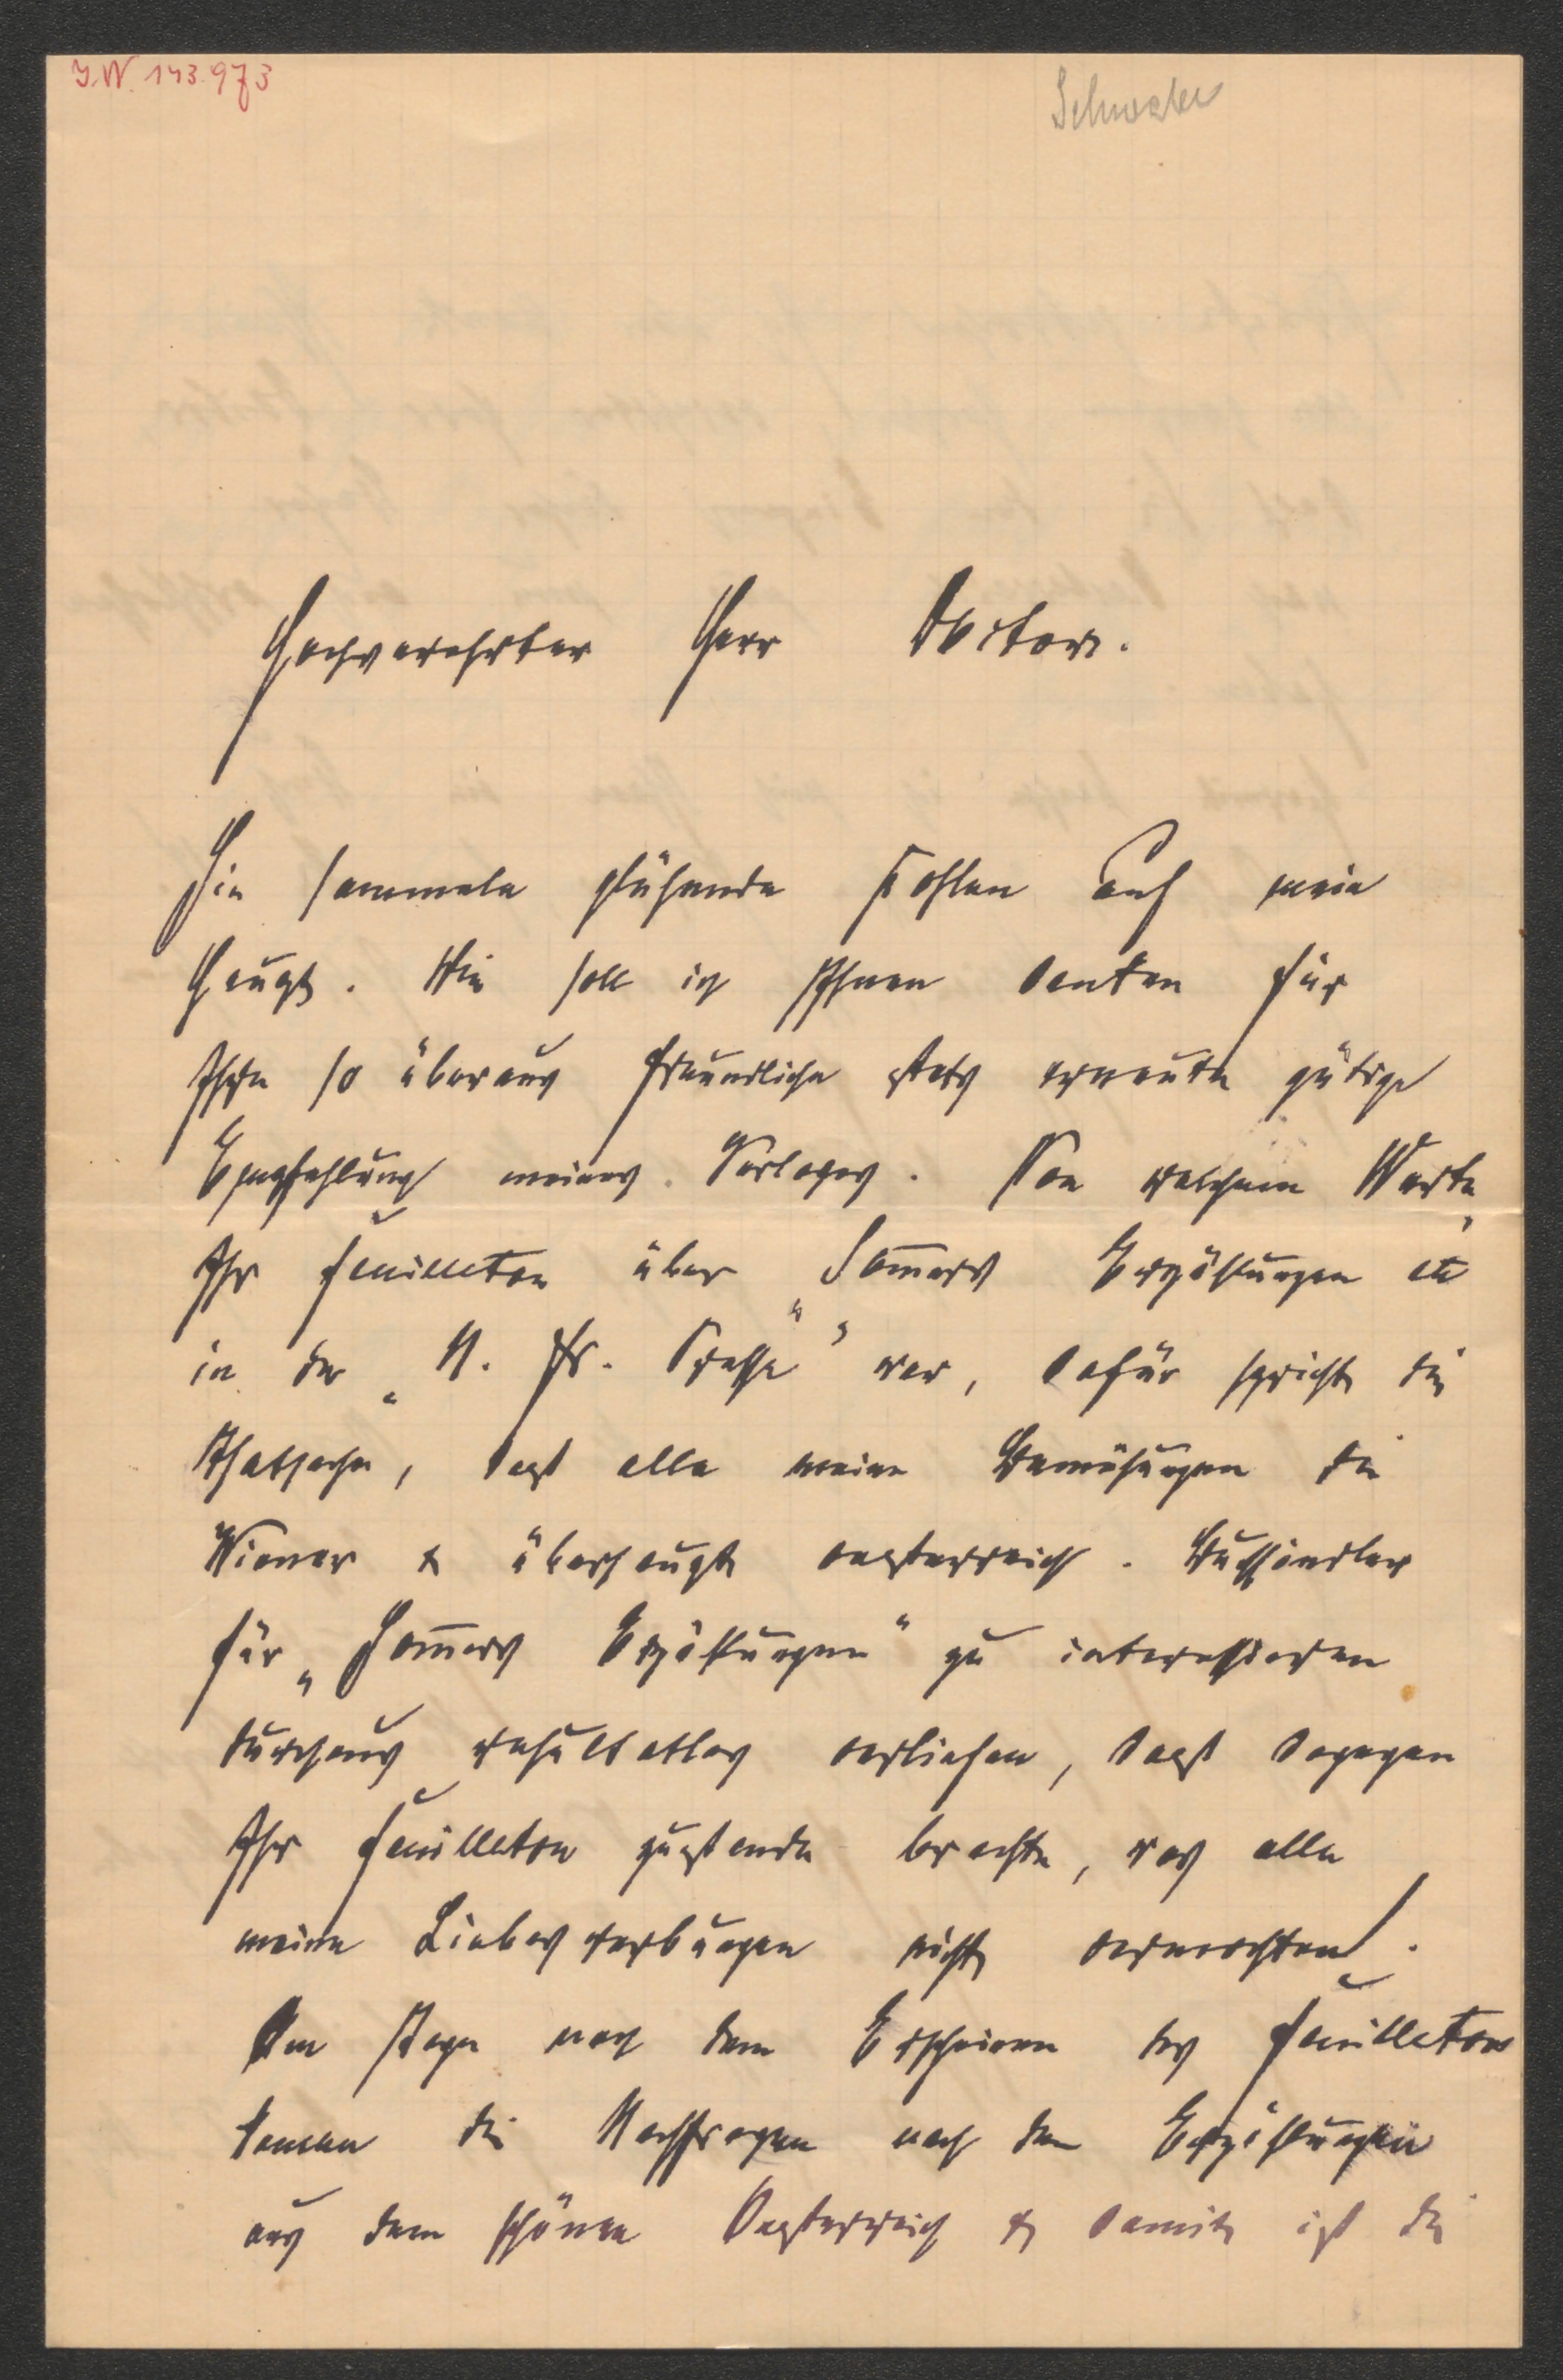 J.N. 143.973
Schwabe
Hochverehrter Herr Doctor.
Sie sammeln glühende Kohlen auf mein
Haupt. Wie soll ich Ihnen danken für
Ihre so überaus freundliche stets erneute gütige
Empfehlung meines Verlages. Von welchem Werte
Ihr Feuilleton über „Somers Erzählungen etc“
in der „N. Fr. Presse“ war, dafür spricht die
Thatsache, dass alle meine Bemühungen die
Wiener & überhaupt oesterreich. Buchhändler
für „Somers Erzählungen“ zu interessieren
durchaus resultatlos verliefen, dass dagegen
Ihr Feuilleton zustande brachte, was alle
meine Liebeswerbungen nicht vermochten!.
Am Tage nach dem Erscheinen des Feuilletons
kamen die Nachfragen nach den Erzählungen
aus dem schönen Oesterreich & damit ist die